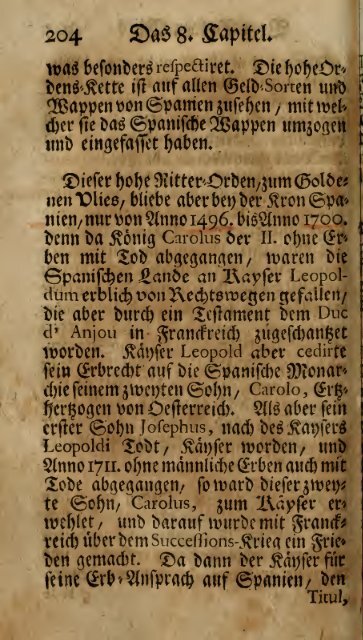 204 Das 8. Capitel.
was besonders respectiret. Die hohe Or-
dens-Kette ist auf allen Geld-Sorten und
Wappen von Spanien zusehen, mit wel-
cher sie das Spanische Wappen umzogen
und eingefasset haben.
Dieser hohe Ritter-Orden, zum Golde-
nen Vlies, bliebe aber bey der Kron Spa-
nien, nur von Anno 1496. bis Anno 1700.
denn da König Carolus der II. ohne Er-
ben mit Tod abgegangen, waren die
Spanischen Lande an Kayser Leopol-
dum erblich von Rechtswegen gefallen,
die aber durch ein Testament dem Duc
d' Anjou in Franckreich zugeschantzet
worden. Käyser Leopold aber cedirte
sein Erbrecht auf die Spanische Monar-
chie seinem zweyten Sohn, Carolo, Ertz-
hertzogen von Oesterreich. Als aber sein
erster Sohn Josephus, nach des Kaysers
Leopoldi Todt, Käyser worden, und
Anno 1711. ohne männliche Erben auch mit
Tode abgegangen, so ward dieser zwey-
te Sohn, Carolus, zum Käyser er-
wehlet, und darauf wurde mit Franck-
reich über dem Successions-Krieg ein Frie-
den gemacht. Da dann der Käyser für
seine Erb-Ansprach auf Spanien, den
Titul,